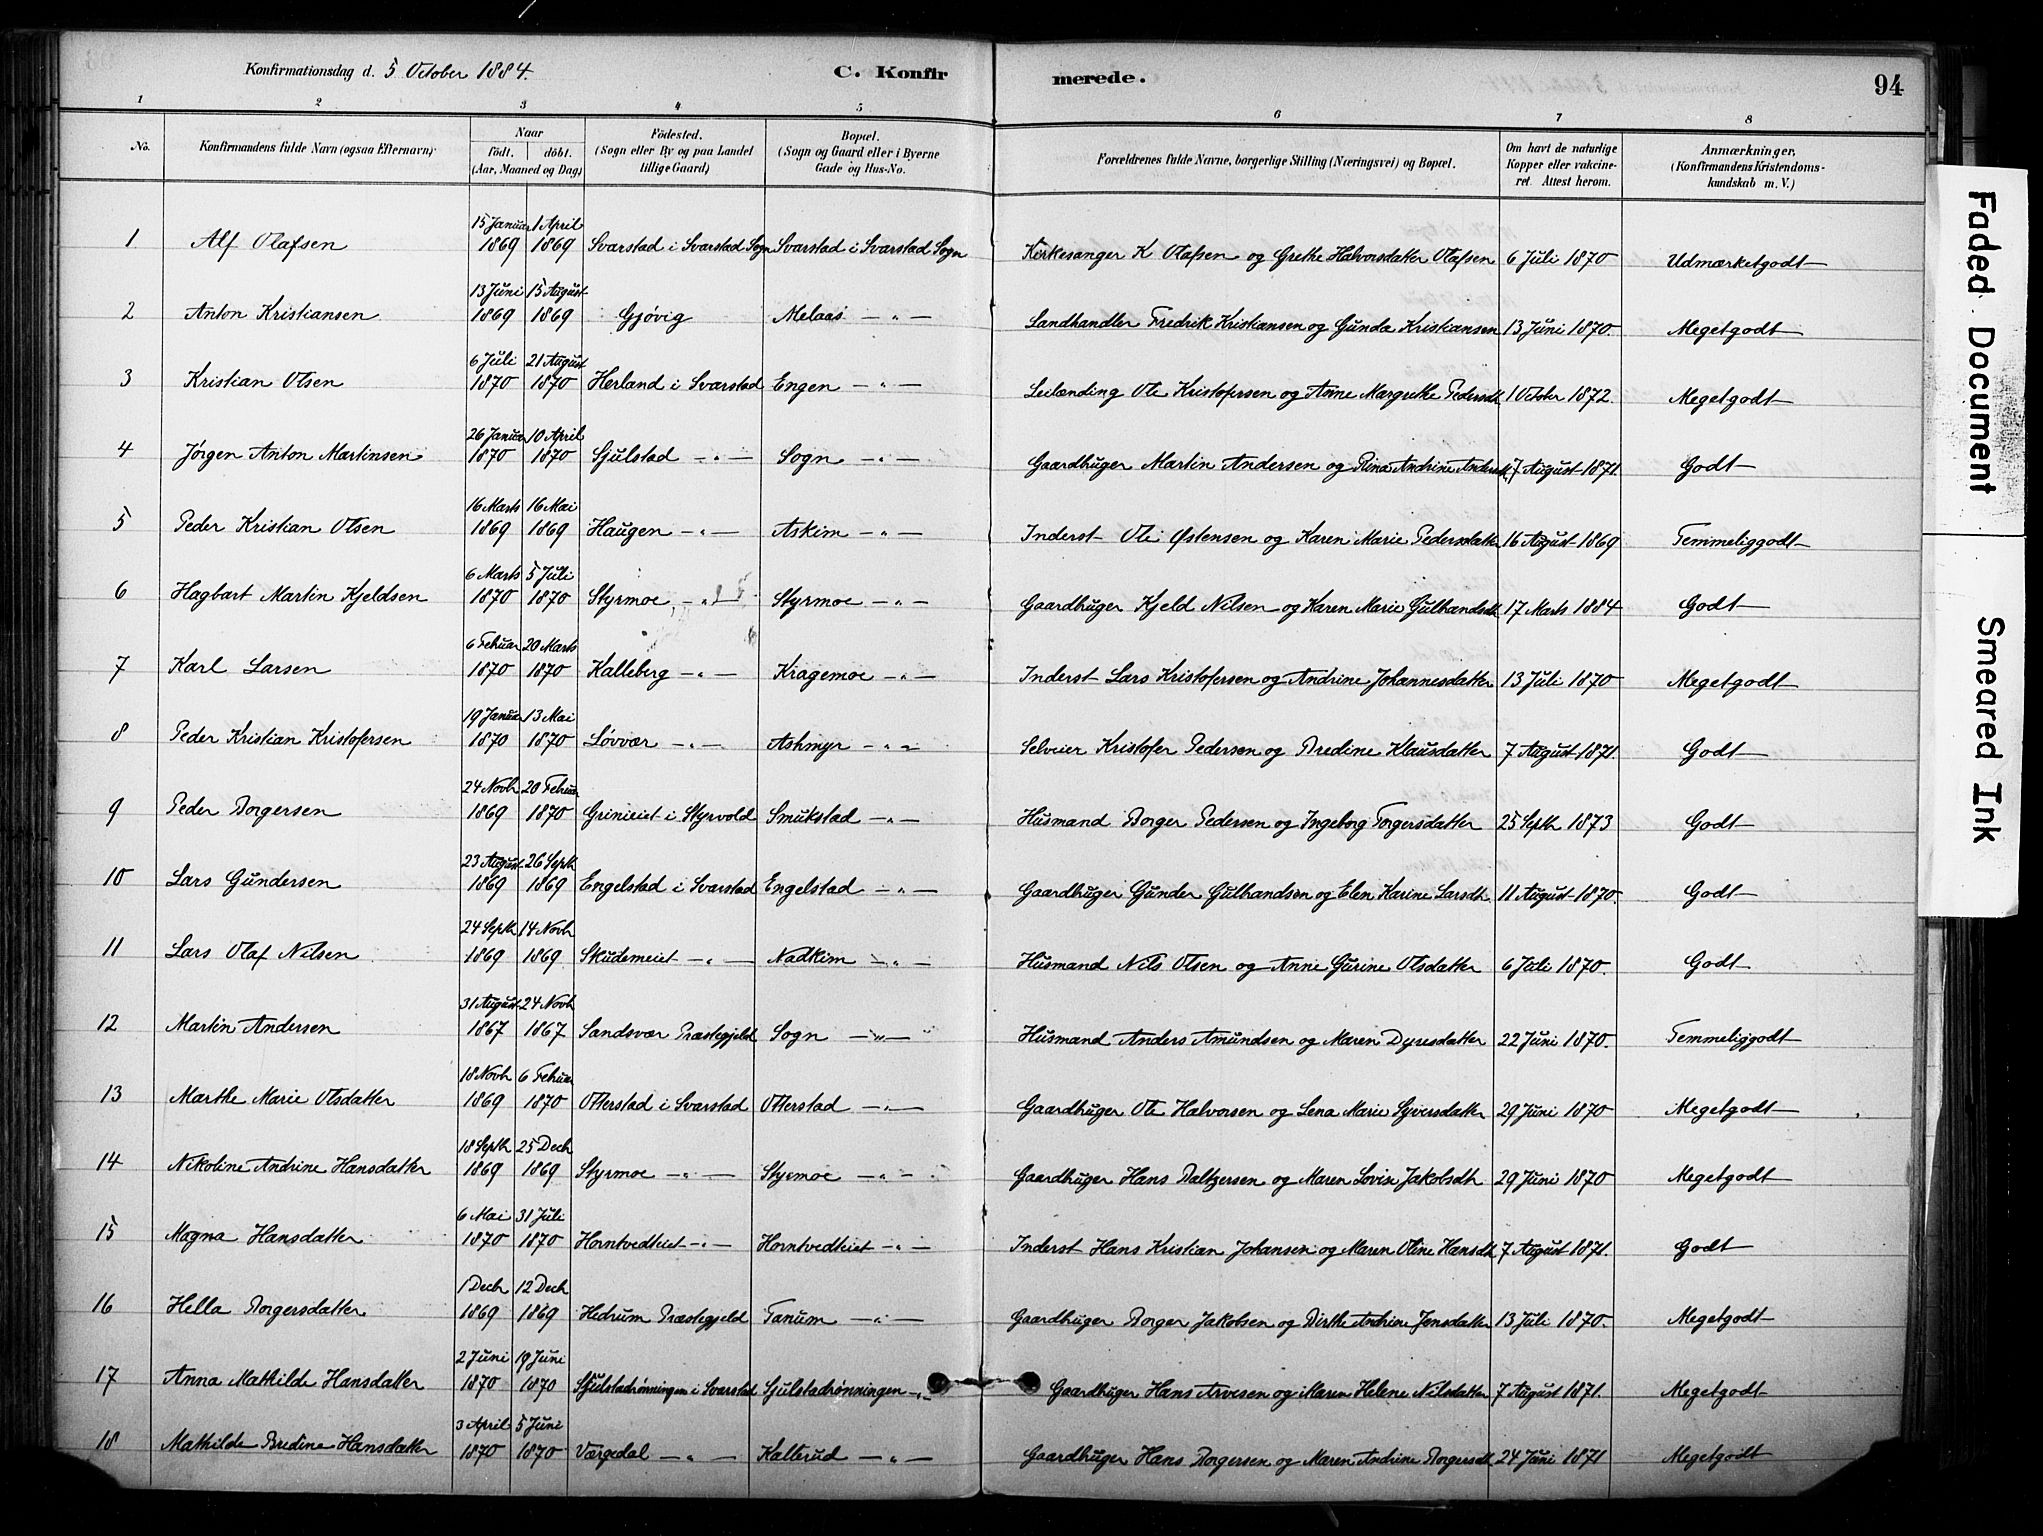 Konfirmationsdag d. 5 October 1884.
C. Konfirmerede.
94
1 2 3 4 5 6 7 8
No.
Konfirmandens fulde Navn (ogsaa Efternavn)
Naar
født. døbt.
(Aar, Maaned og Dag)
Fødested.
(Sogn eller By og paa Landet
tillige Gaard)
Bopæl.
(Sogn og Gaard eller i Byerne
Gade og Hus-No.
Forældrenes fulde Navne, borgerlige Stilling (Næringsvei) og Bopæl.
Om havt de naturlige
Kopper eller vakcine-
ret. Attest herom.
Anmærkninger,
(Konfirmandens Kristendoms-
kundskab m. V.)
1 Alf Olafsen 15 Januar 1869 1 April 1869 Svarstad i Svarstad Sogn Svarstad i Svarstad Sogn Kirkesanger K Olafsen og Grethe Halvorsdatter Olafsen 6 Juli 1870 Udmærketgodt
2 Anton Kristiansen 13 Juni 1869 15 August 1869 Gjøvig Melaas — " — Landhandler Fredrik Kristiansen og Gunda Kristiansen 13 Juni 1870. Megetgodt
3 Kristian Olsen 6 Juli 1870 21 August 1870 Herland i Svarstad Engen — " — Leilænding Ole Kristofersen og Anne Margrethe Pedersdt. 1 October 1872. Megetgodt
4 Jørgen Anton Martinsen 26 Januar 1870 10 April 1870 Sjulstad — " — Sogn — " — Gaardbruger Martin Andersen og Rina Andrine Andersdt. 7 August 1871. Godt
5 Peder Kristian Olsen 16 Marts 1869 16 Mai 1869 Haugen — " — Askim — " — Inderst Ole Østensen og Karen Marie Pedersdatter 16 August 1869 Temmeliggodt
6 Hagbart Martin Kjeldsen 6 Marts 1870 5 Juli 1870 Styrmoe — " — Styrmoe — " — Gaardbruger Kjeld Nilsen og Karen Marie Gulbrandsdt. 17 Marts 1884 Godt
7 Karl Larsen 6 Februar 1870 20 Marts 1870 Kalleberg — " — Kragemoe — " — Inderst Lars Kristofersen og Andrine Johannesdatter 13 Juli 1870 Megetgodt
8 Peder Kristian Kristofersen 19 Januar 1870 13 Mai 1870 Løvvær — " — Askmyr — " — Selveier Kristofer Pedersen og Bredine Klausdatter 7 August 1871. Godt
9 Peder Borgersen 24 Novbr 1869 20 Februar 1870 Grinieiet i Styrvold Smukstad — " — Husmand Borger Pedersen og Ingeborg Torgersdatter 25 Septbr 1873 Godt
10 Lars Gundersen 23 August 1869 26 Septbr 1869 Engelstad i Svarstad Engelstad — " — Gaardbruger Gunder Gulbrandsen og Elen Karine Larsdt. 11 August 1870. Godt
11 Lars Olaf Nilsen 24 Septbr 1869 14 Novbr 1869 Skudemeiet — " — Nadkim — " — Husmand Nils Olsen og Anne Gurine Olsdatter 6 Juli 1870. Godt
12 Martin Andersen 31 August 1867 24 Novbr 1867 Sandsvær Præstegjeld Sogn — " — Husmand Anders Amundsen og Maren Dyresdatter 22 Juni 1870. Temmeliggodt
13 Marthe Marie Olsdatter 18 Novbr 1869 6 Februar 1870 Otterstad i Svarstad Otterstad — " — Gaardbruger Ole Halvorsen og Lena Marie Syversdatter 29 Juni 1870 Megetgodt
14 Nikoline Andrine Hansdatter 18 Septbr 1869 25 Decbr 1869 Styrmoe — " — Styrmoe — " — Gaardbruger Hans Baltzersen og Maren Lovise Jakobsdtr 29 Juni 1870 Megetgodt
15 Magna Hansdatter 6 Mai 1870 31 Juli 1870 Horntvedteiet — " — Horntvedteiet — " — Inderst Hans Kristian Johansen og Maren Oline Hansdt. 7 August 1871. Godt
16 Hella Borgersdatter 1 Decbr 1869 12 Decbr 1869 Hedrum Præstegjeld Tanum — " — Gaardbruger Borger Jakobsen og Birthe Andrine Jensdatter 13 Juli 1870. Megetgodt
17 Anna Mathilde Hansdatter 2 Juni 1870 19 Juni 1870 Sjulstadrønningen i Svarstad Sjulstadrønningen — " — Gaardbruger Hans Arvesen og Maren Helene Nilsdatter 7 August 1871. Megetgodt
18 Mathilde Bredine Hansdatter 3 April 1870 5 Juni 1870 Værgedal — " — Kalterud — " — Gaardbruger Hans Borgersen og Maren Andrine Borgersdt. 24 Juni 1871 Megetgodt
Faded Document
Smeared Ink